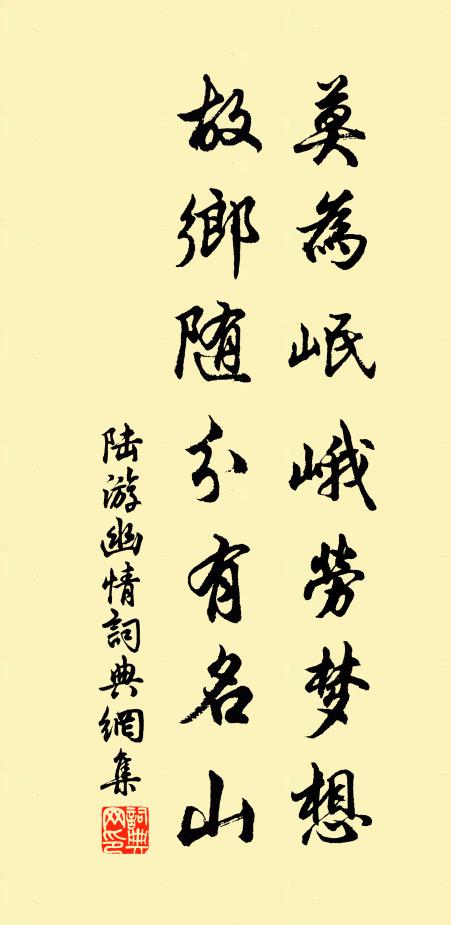 莫為岷峨劳梦想
故鄉随分有名山
陆游幽情詞典網集
詞典网印